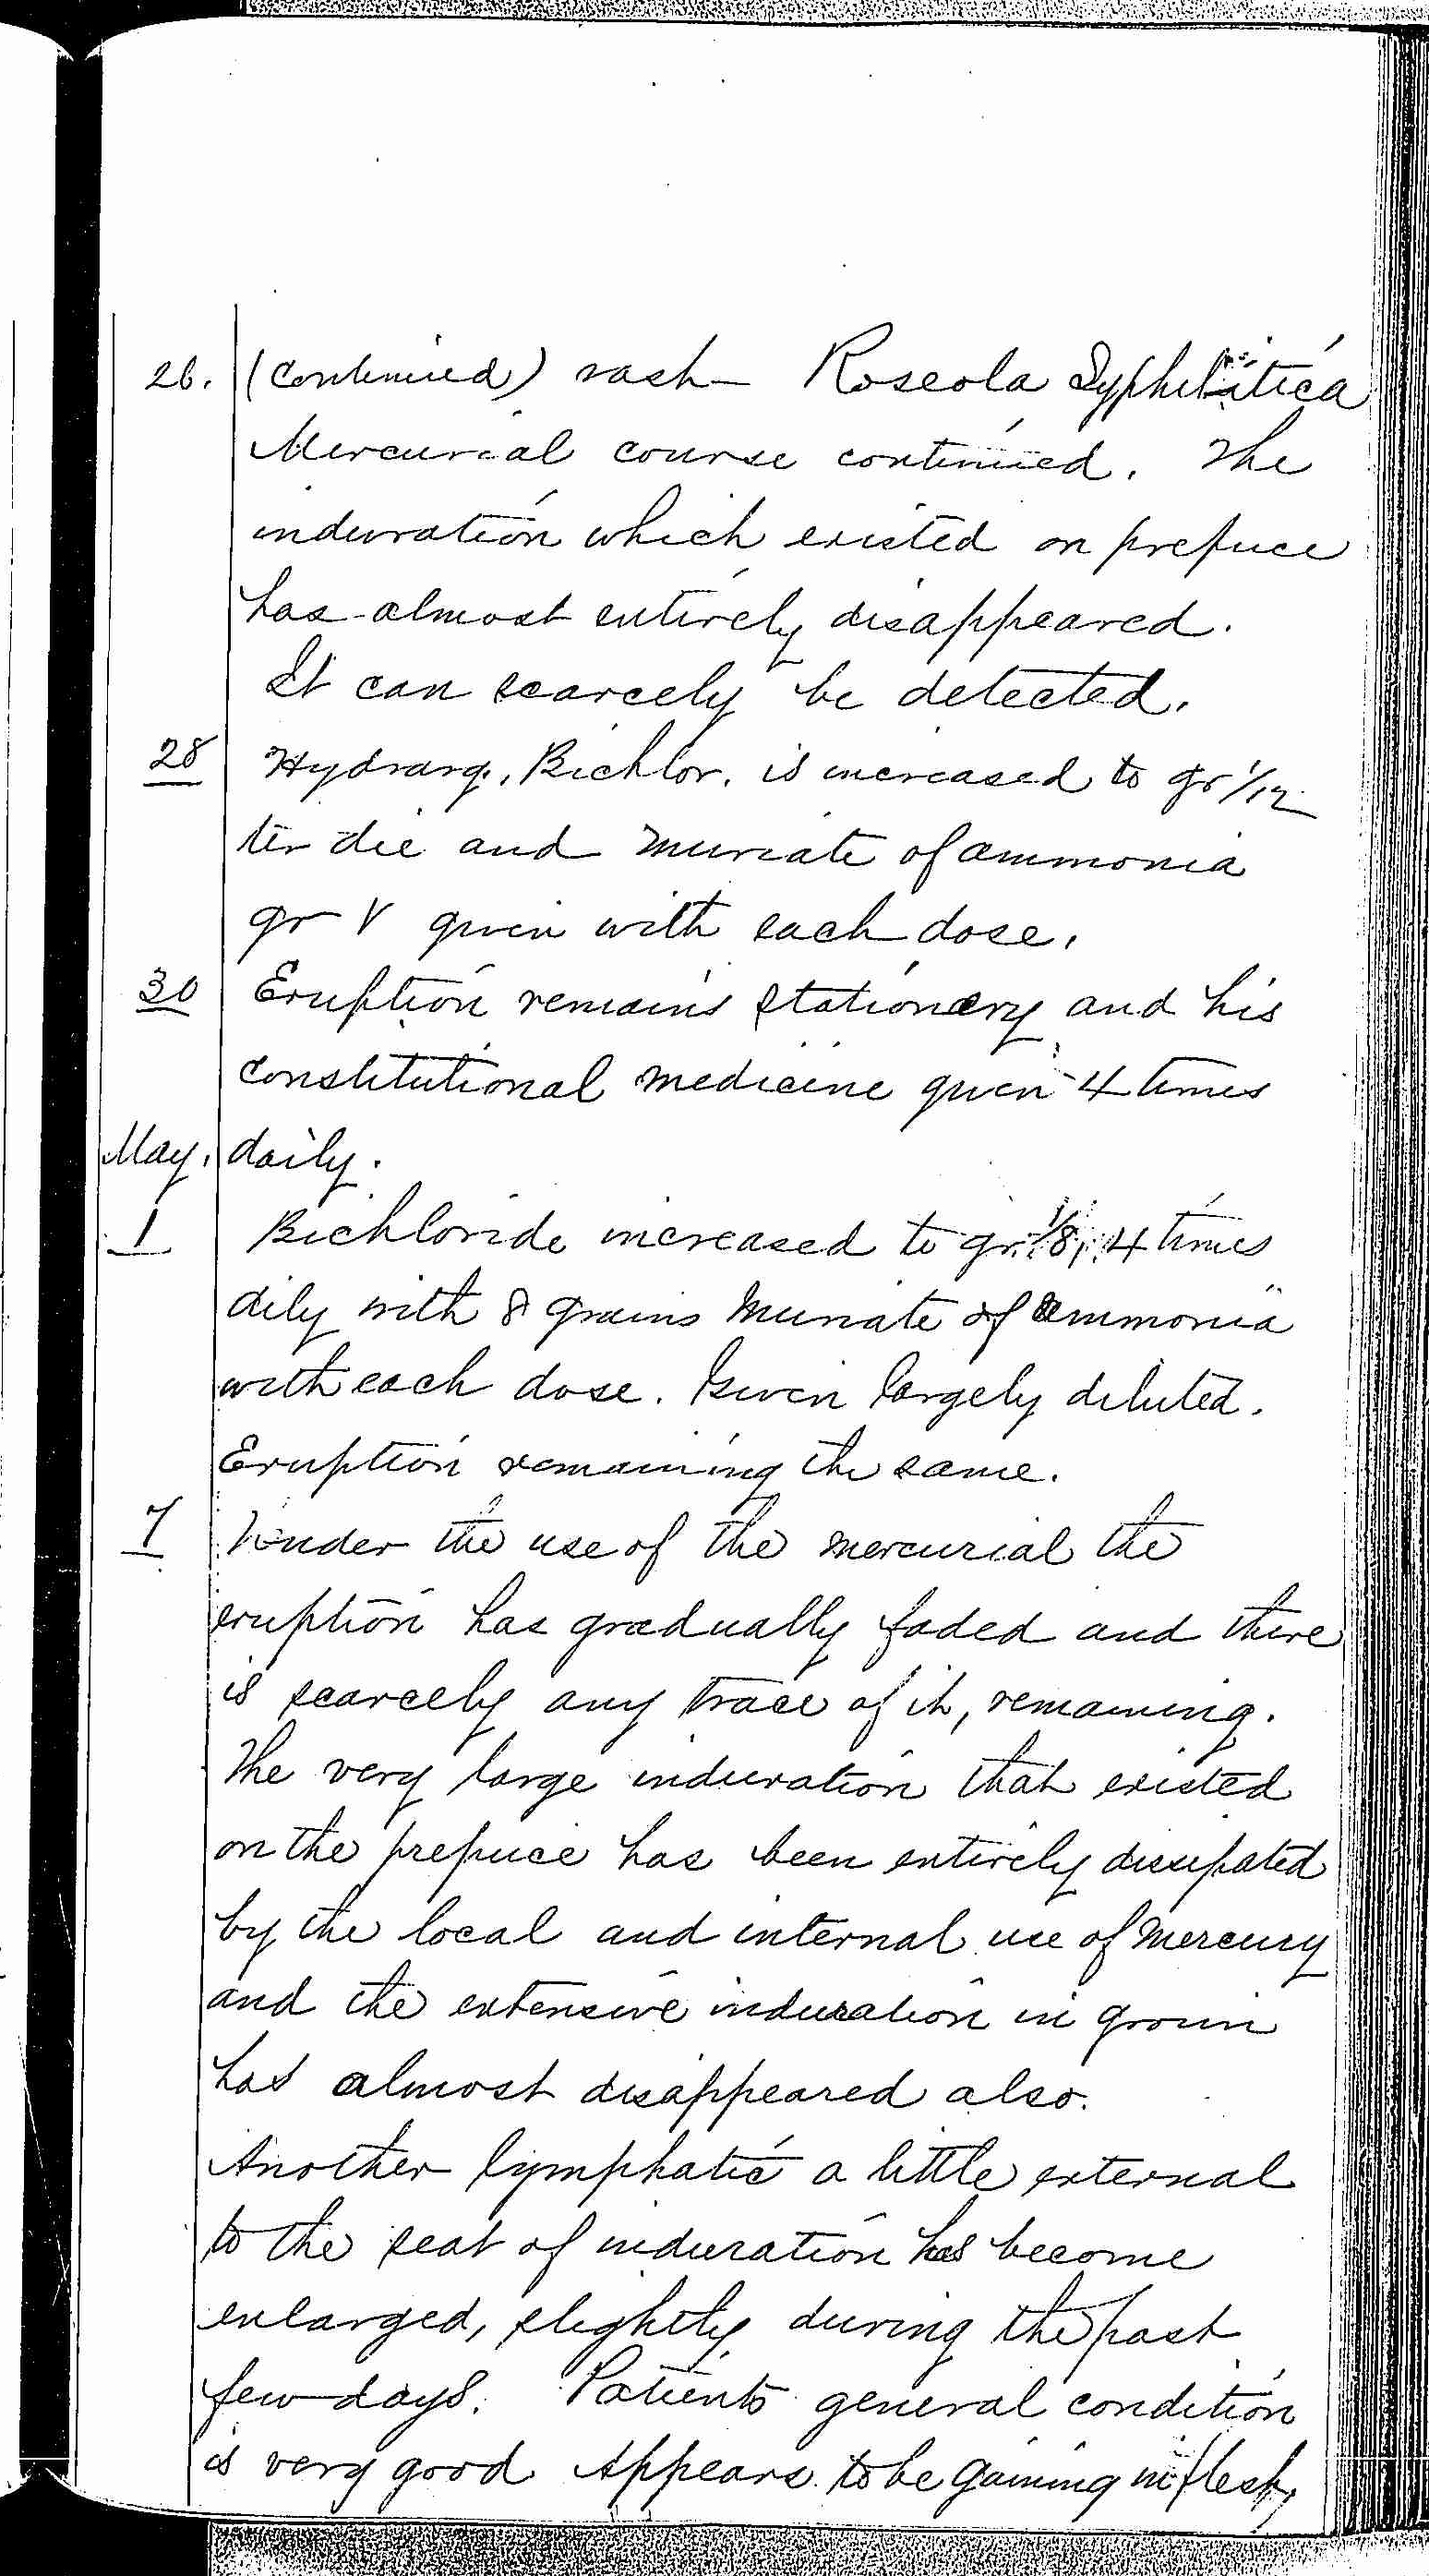 26. (Continued) rash — Roseola Syphilitica
Mercurial course continued. The
induration which existed on prepuce
has almost entirely disappeared.
It can scarcely be detected.
28 Hydrarg. Bichlor. is increased to gr 1/12
ter die and muriate of ammonia
gr V given with each dose.
30 Eruption remains stationary and his
constitutional medicine given 4 times
May. daily.
1 Bichloride increased to gr. 1/8, 4 times
dily with 8 grains muriate of ammonia
with each dose. Given largely diluted.
Eruption remaining the same.
7 Under the use of the mercurial the
eruption has gradually faded and there
is scarcely any trace of it, remaining.
The very large induration that existed
on the prepuce has been entirely dissipated
by the local and internal use of mercury
and the extensive induration in groin
has almost disappeared also.
Another lymphatic a little external
to the seat of induration has become
enlarged, slightly during the past
few days. Patients general condition
is very good Appears to be gaining in flesh,